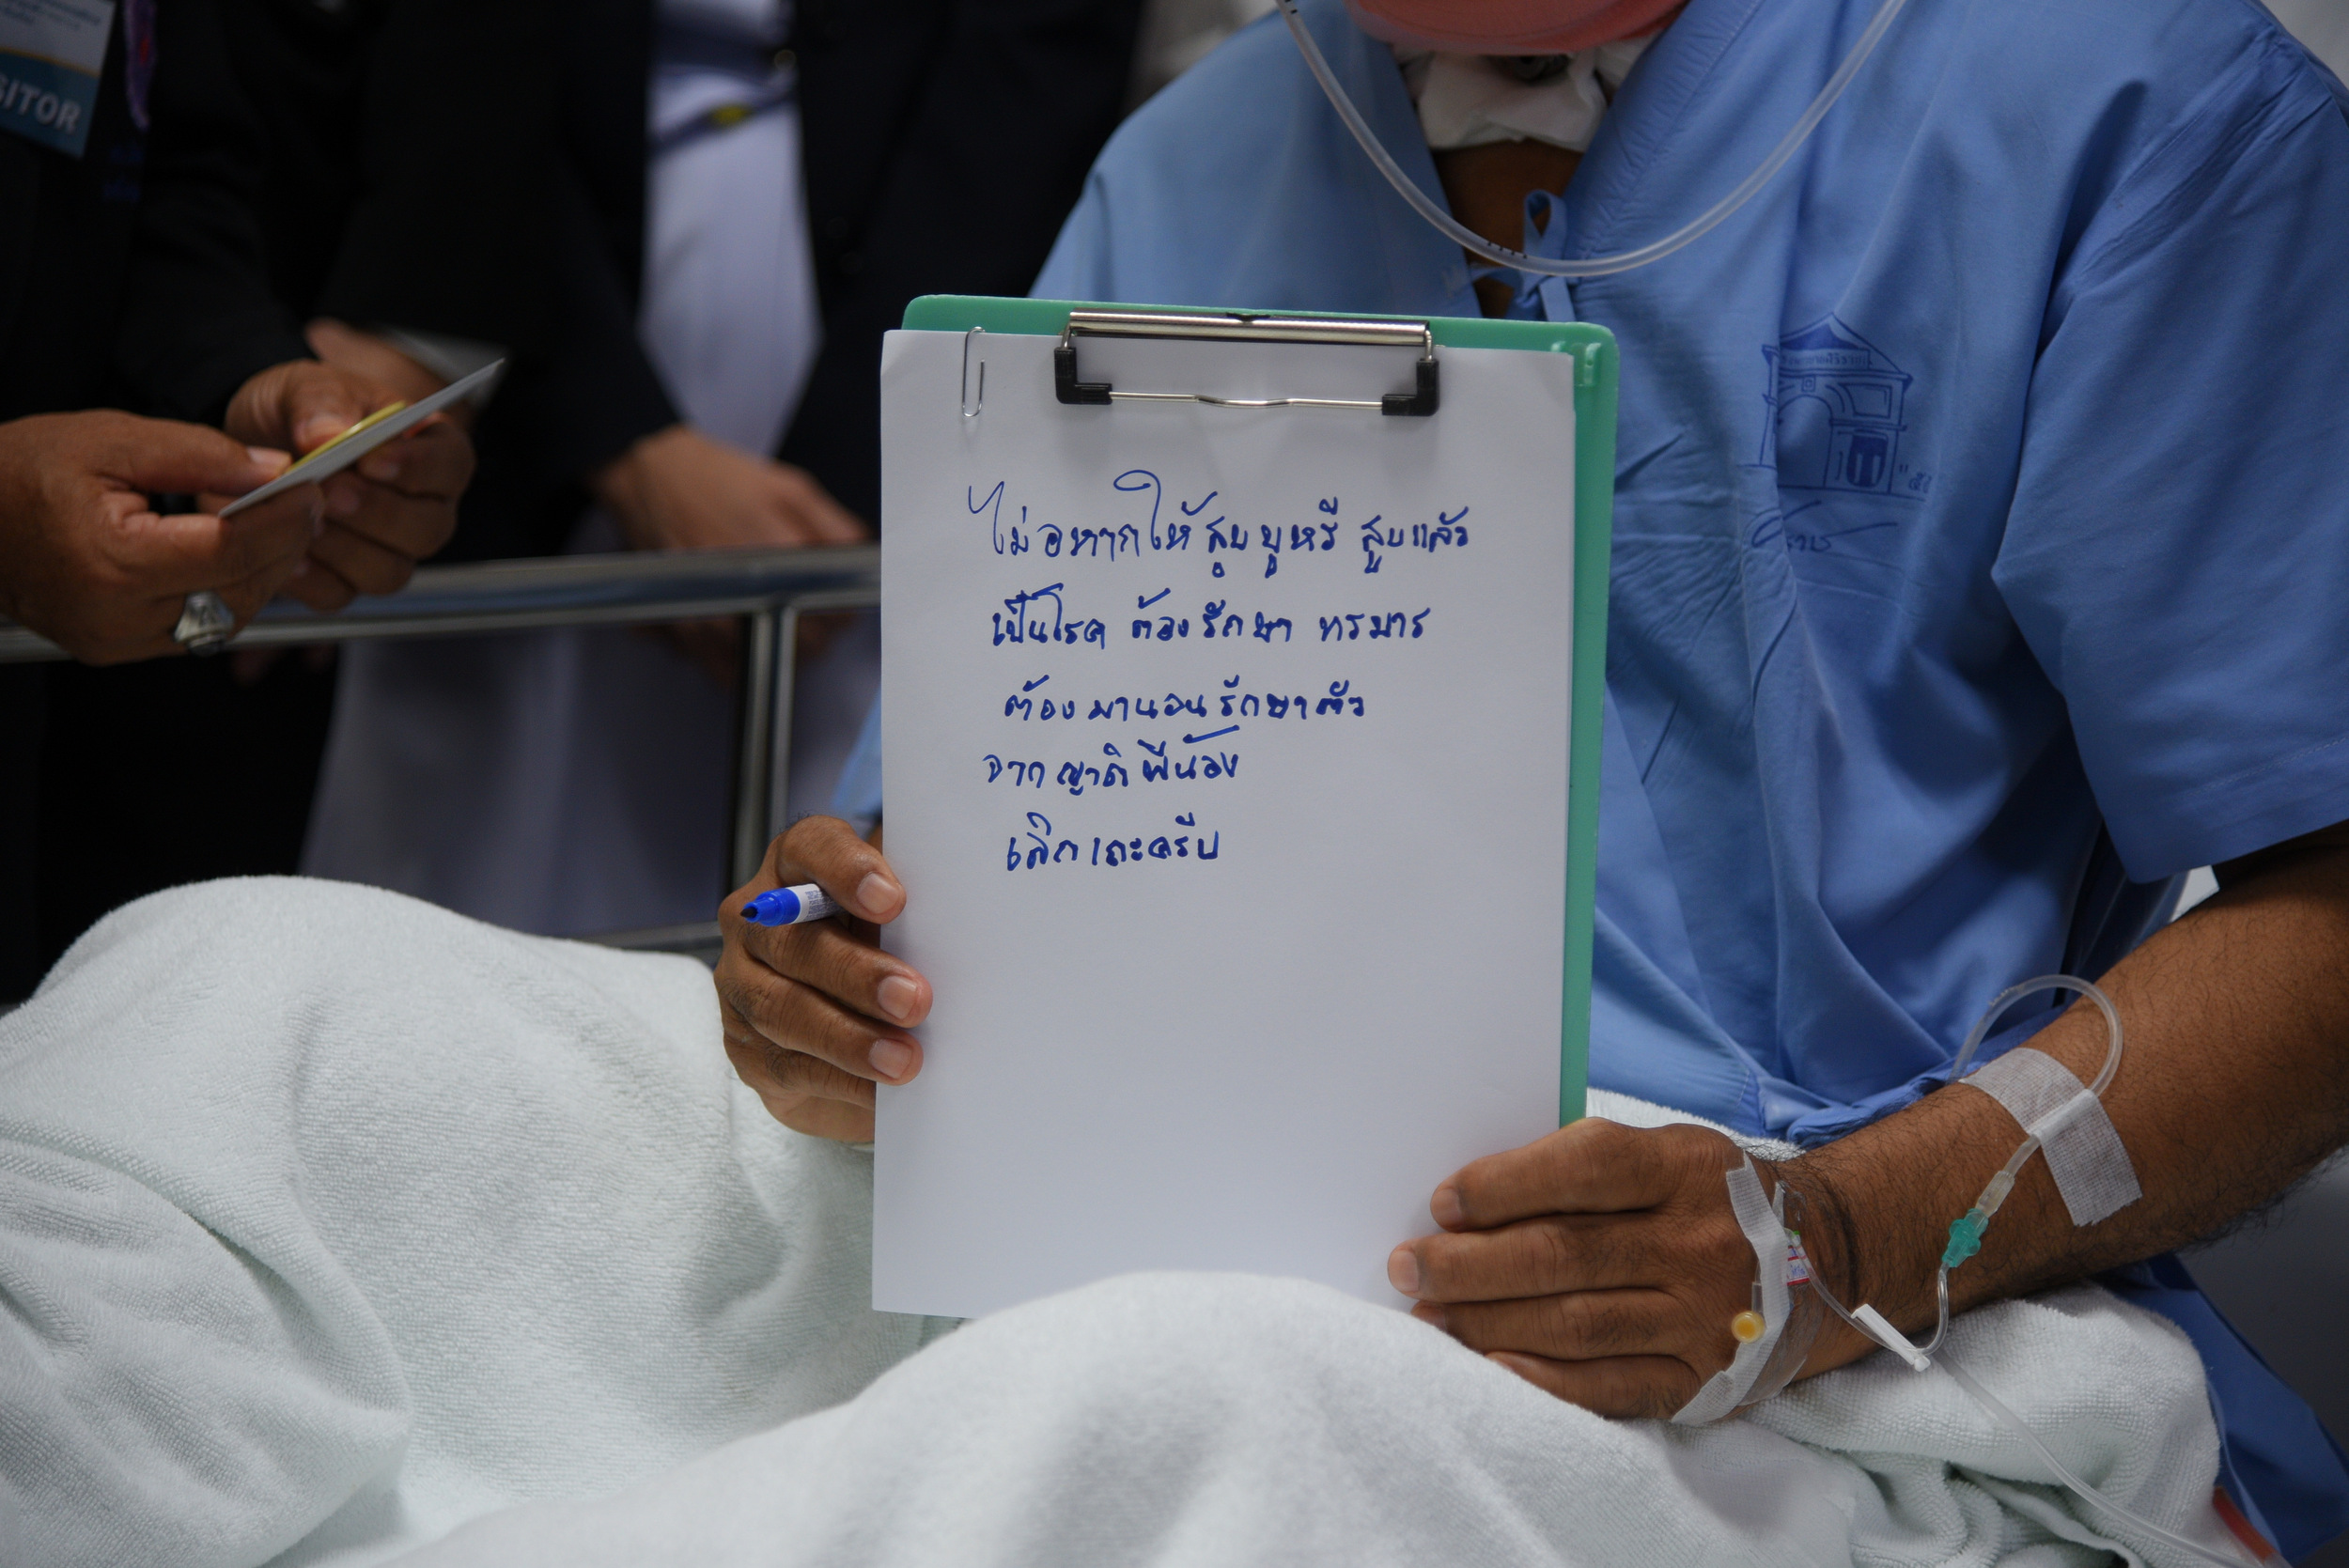 SITOR
ไม่อยากให้ สูบบุหรี่ สูบแล้ว
เป็นโรค ต้องรักษา ทรมาร
ต้องมานอนรักษาตัว
จากญาติพี่น้อง
เลิกเถะครับ